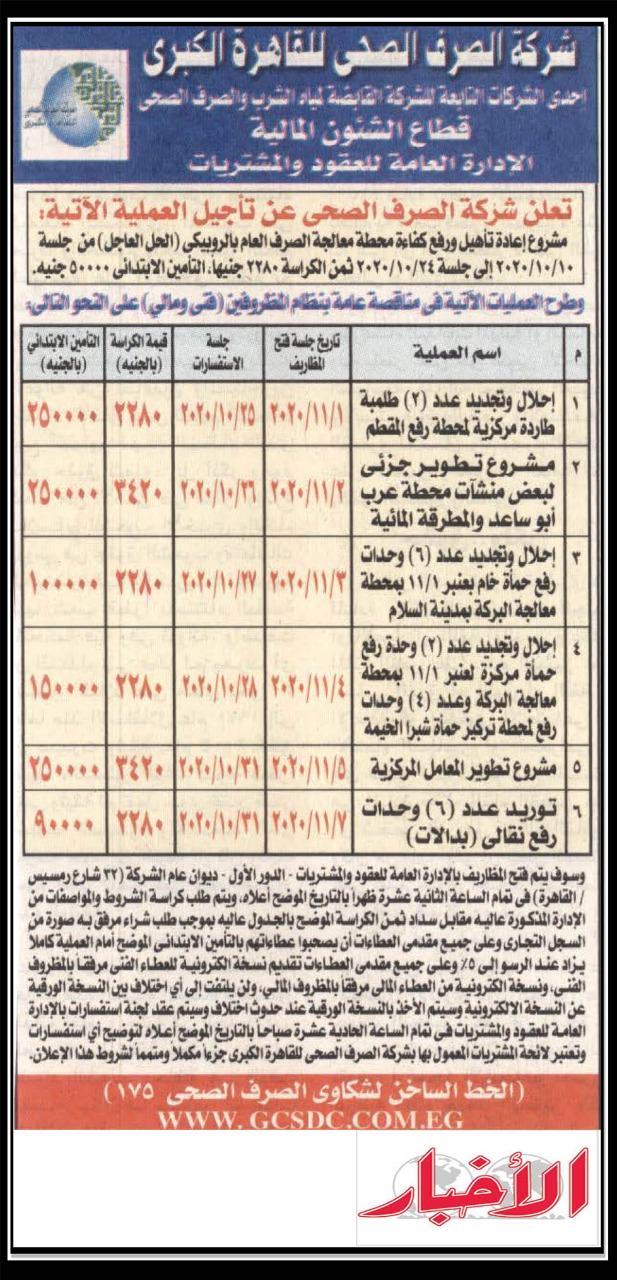 شركة الصرف الصحى للقاهرة الكبرى
إحدى الشركات التابعة للشركة القابضة لمياه الشرب والصرف الصحى
قطاع الشئون المالية
الإدارة العامة للعقود والمشتريات
تعلن شركة الصرف الصحى عن تأجيل العملية الآتية:
مشروع إعادة تأهيل ورفع كفاءة محطة معالجة الصرف العام بالروبيكى (الحل العاجل) من جلسة
٢٠٢٠/١٠/١٠ إلى جلسة ٢٠٢٠/١٠/٢٤ ثمن الكراسة ٢٢٨٠ جنيهاً، التأمين الابتدائى ٥٠٠٠٠ جنيه.
وطرح العمليات الآتية فى مناقصة عامة بنظام المظروفين (فنى ومالي) على النحو التالى:
م اسم العملية تاريخ جلسة فتح المظاريف جلسة الاستفسارات قيمة الكراسة (بالجنيه) التأمين الابتدائي (بالجنيه)
١ إحلال وتجديد عدد (٢) طلمبة
طاردة مركزية لمحطة رفع المقطم ٢٠٢٠/١١/١ ٢٠٢٠/١٠/٢٥ ٢٢٨٠ ٢٥٠٠٠٠
٢ مشروع تطوير جزئى
لبعض منشآت محطة عرب
أبو ساعد والمطرقة المائية ٢٠٢٠/١١/٢ ٢٠٢٠/١٠/٢٦ ٣٤٢٠ ٢٥٠٠٠٠
٣ إحلال وتجديد عدد (٦) وحدات
رفع حمأة خام بعنبر ١١/١ بمحطة
معالجة البركة بمدينة السلام ٢٠٢٠/١١/٣ ٢٠٢٠/١٠/٢٧ ٢٢٨٠ ١٠٠٠٠٠
٤ إحلال وتجديد عدد (٢) وحدة رفع
حمأة مركزة لعنبر ١١/١ بمحطة
معالجة البركة وعدد (٤) وحدات
رفع لمحطة تركيز حمأة شبرا الخيمة ٢٠٢٠/١١/٤ ٢٠٢٠/١٠/٢٨ ٢٢٨٠ ١٥٠٠٠٠
٥ مشروع تطوير المعامل المركزية ٢٠٢٠/١١/٥ ٢٠٢٠/١٠/٣١ ٣٤٢٠ ٢٥٠٠٠٠
٦ توريد عدد (٦) وحدات
رفع نقالى (بدالات) ٢٠٢٠/١١/٧ ٢٠٢٠/١٠/٣١ ٢٢٨٠ ٩٠٠٠٠
وسوف يتم فتح المظاريف بالإدارة العامة للعقود والمشتريات - الدور الأول - ديوان عام الشركة (٣٢ شارع رمسيس
/ القاهرة) فى تمام الساعة الثانية عشرة ظهراً بالتاريخ الموضح أعلاه، ويتم طلب كراسة الشروط والمواصفات من
الإدارة المذكورة عاليه مقابل سداد ثمن الكراسة الموضح بالجدول عاليه بموجب طلب شراء مرفق به صورة من
السجل التجارى وعلى جميع مقدمى العطاءات أن يصحبوا عطاءاتهم بالتأمين الابتدائى الموضح أمام العملية كاملا
يزاد عند الرسو إلى ٥٪ وعلى جميع مقدمى العطاءات تقديم نسخة الكترونية للعطاء الفنى مرفقا بالمظروف
الفنى، ونسخة الكترونية من العطاء المالى مرفقاً بالمظروف المالي، ولن يلتفت إلى أي اختلاف بين النسخة الورقية
عن النسخة الالكترونية وسيتم الأخذ بالنسخة الورقية عند حدوث اختلاف وسيتم عقد لجنة استفسارات بالإدارة
العامة للعقود والمشتريات فى تمام الساعة الحادية عشرة صباحاً بالتاريخ الموضح أعلاه لتوضيح أي استفسارات
وتعتبر لائحة المشتريات المعمول بها بشركة الصرف الصحى للقاهرة الكبرى جزءاً مكملاً ومتمماً لشروط هذا الإعلان.
(الخط الساخن لشكاوى الصرف الصحى ١٧٥)
WWW. GCSDC.COM.EG
الأخبار